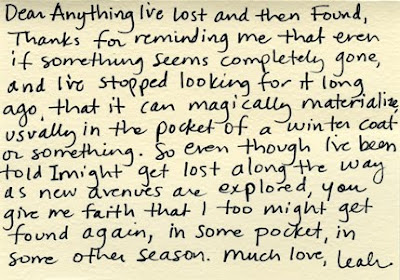 Dear Anything I've lost and then Found,
Thanks for reminding me that even
if something seems completely gone,
and I've stopped looking for it long
ago, that it can magically materialize
usually in the pocket of a winter coat
or something. So even though I've been
told I might get lost along the way
as new avenues are explored, you
give me faith that I too might get
found again, in some pocket, in
some other season. much love, Leah